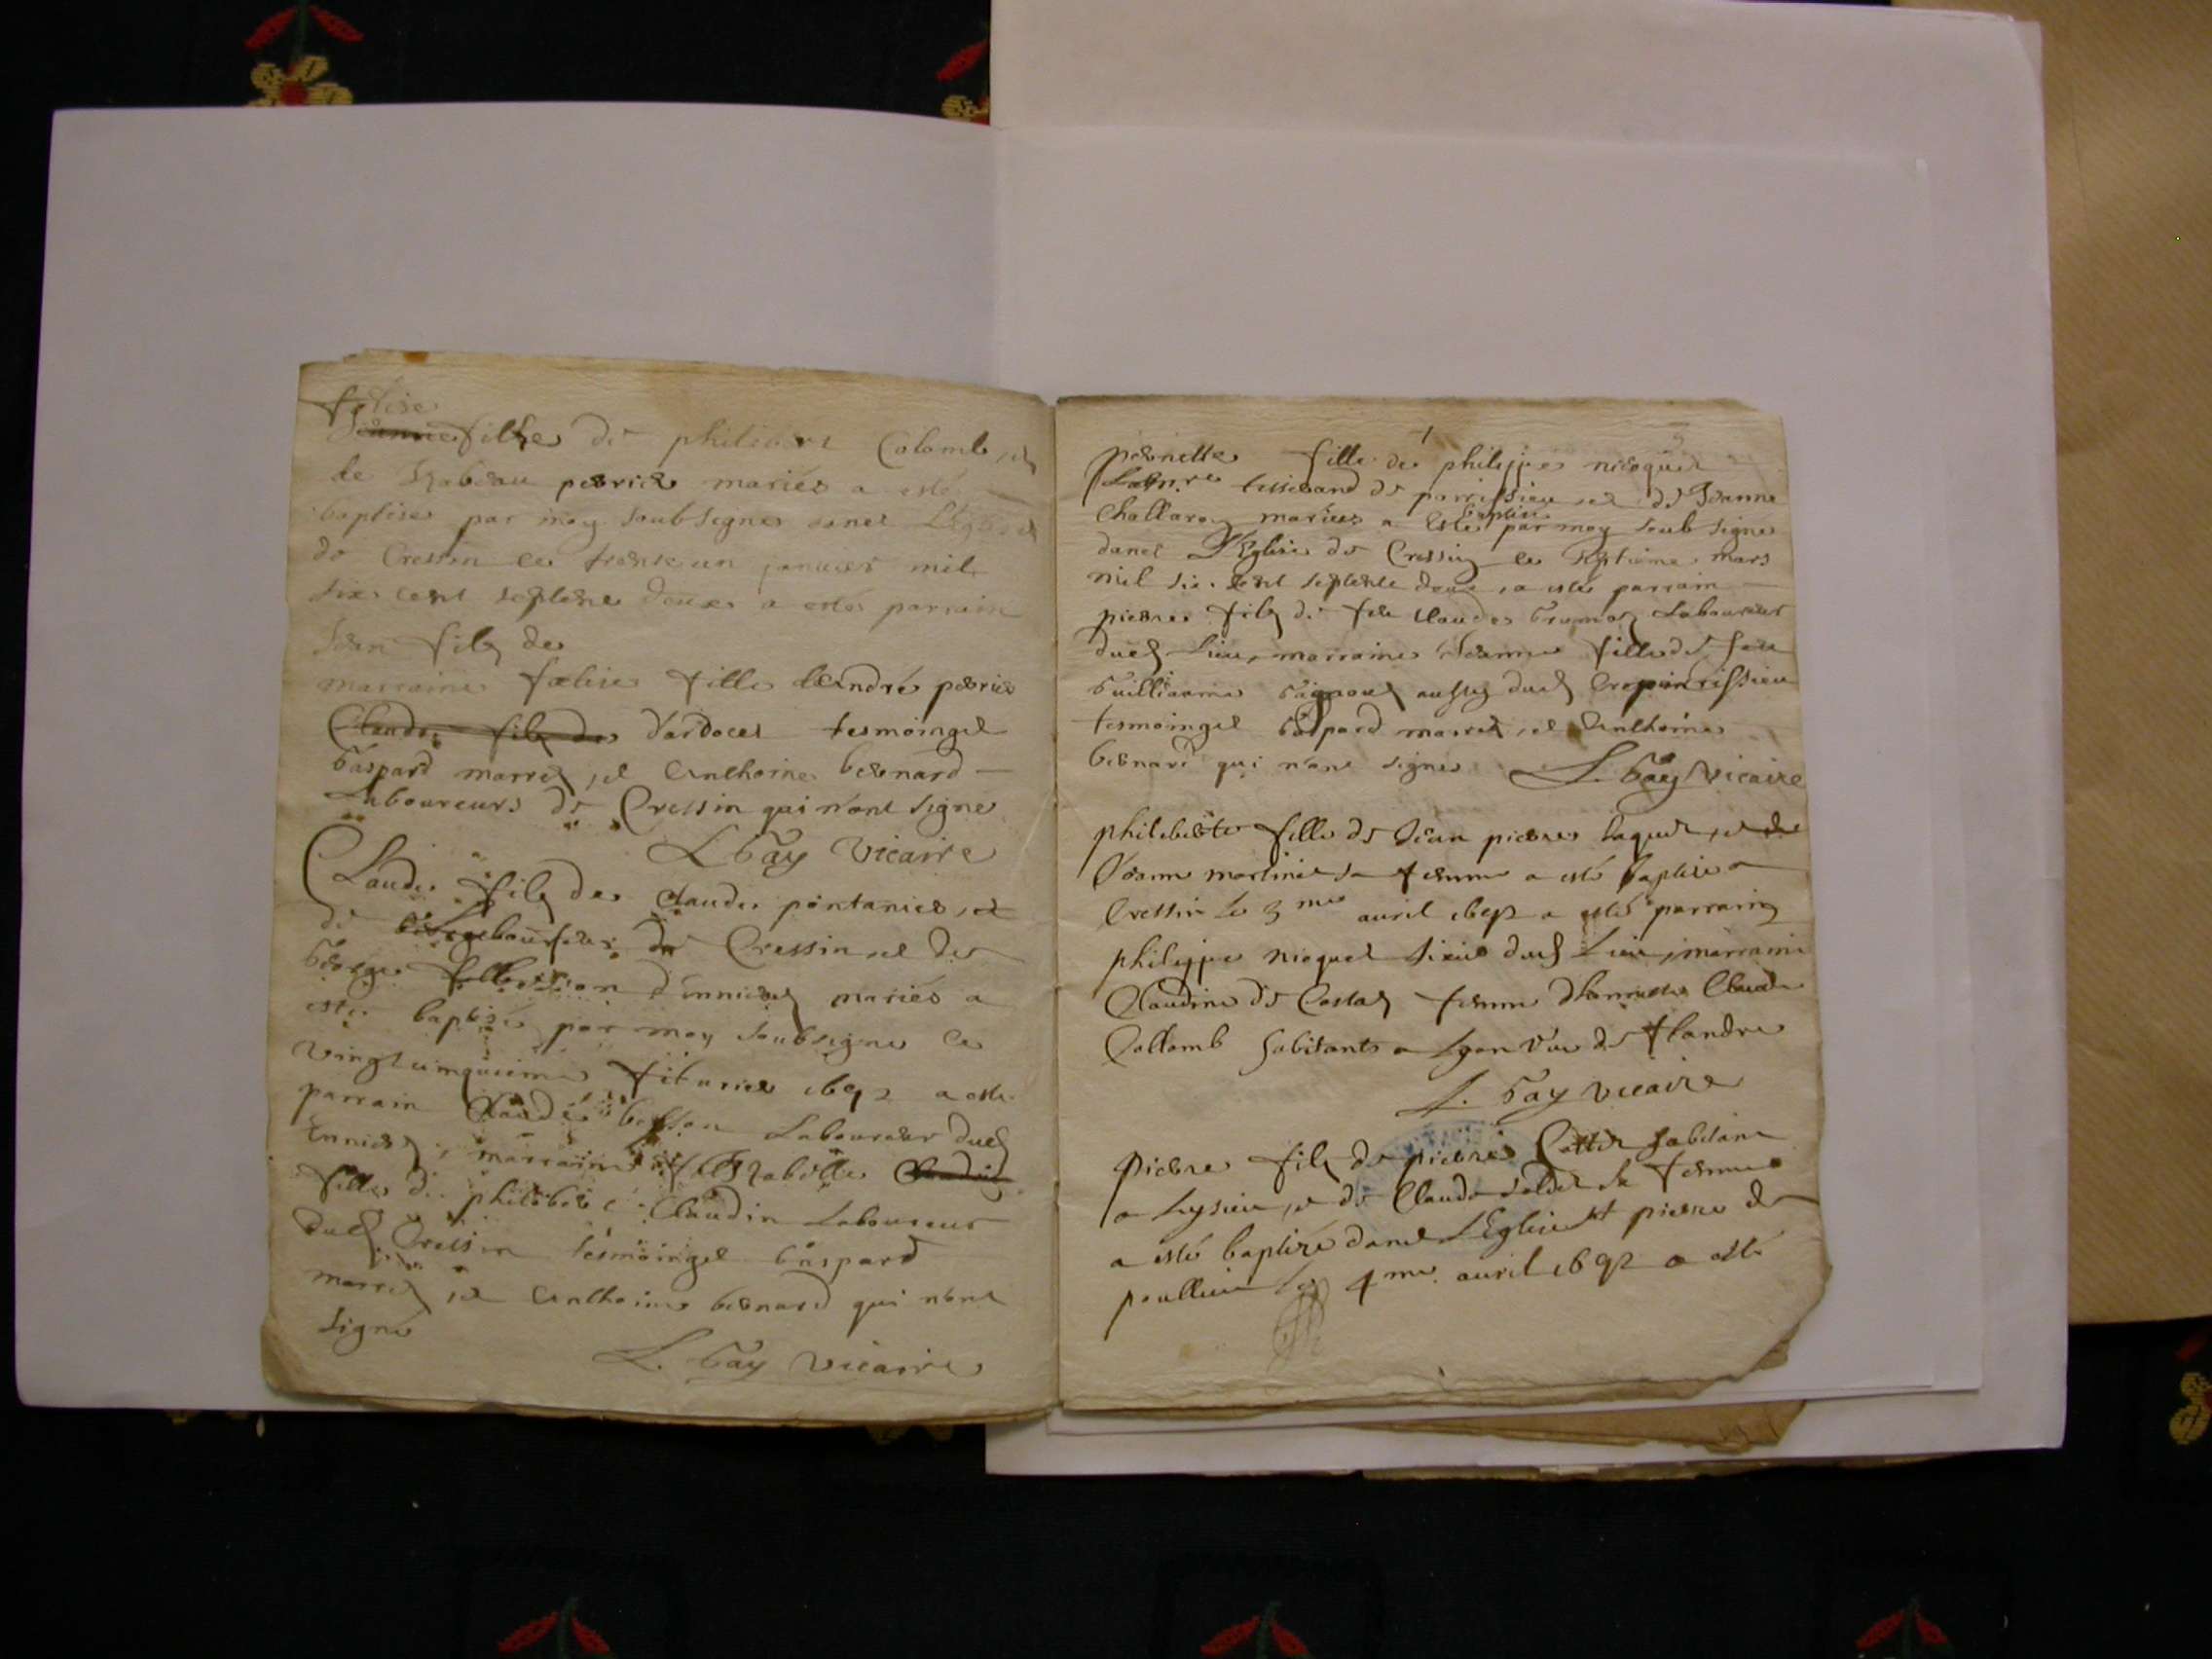 felise
Jeanne fillie de philibert Colomb, et
de Izabeau perrier mariés a esté
baptisee par moy soubsigne dans L'Eglise
de Cressin le trente un janvier mil
six cent septente deux a estés parrain
Jean filz de
marraine fœlise fille dAndré perrier
Claude filz de dardoces tesmoingz
Gaspard marrel, et Anthoine bernard
Laboureurs de Cressin qui n'ont signe
L Gay Vicaire
Claude filz de Claude pontanier, et
de de Cressin et de
George mariés a
este baptisé par moy soubsigne le
vingtcinquieme febvrier 1692 a este
parrain Claude Laboureur
marraine Izabelle Claudin
fille de philibert Claudin Laboureur
dud Cressin tesmoingz Gaspard
marrel, et Anthoine bernard qui n'ont
signé
L. Gay vicaire
pernette fille de philippe nicoque
tisserand de parrissieu et de Jeanne
mariez a esté baptisee par moy soub signe
dans L'Eglise de Cressin le septieme mars
mil six cent septente deux, a esté parrain
pierre filz de feu Claude Laboureur
dud Lieu, marraine Jeanne fille de feu
Guilliaume aussy dud parrissieu
tesmoingz Gaspard marrel, et Anthoine
bernard qui n'ont signe L. Gay Vicaire
philiberte fille de Jean pierre et de
Jeanne martine sa femme a esté baptisee a
Cressin le 3me avril 1692 a esté parrain
philippe nioquet dud Lieu, marraine
Claudine de Costaz femme Claude
Collomb habitants a Lyon rue de flandre
L. Gay vicaire
pierre filz de pierre habitant
a Lysieu, et de Claude sa femme
a esté baptizé dans L'Eglise St pierre de
poullieu le 4me avril 1692 a esté